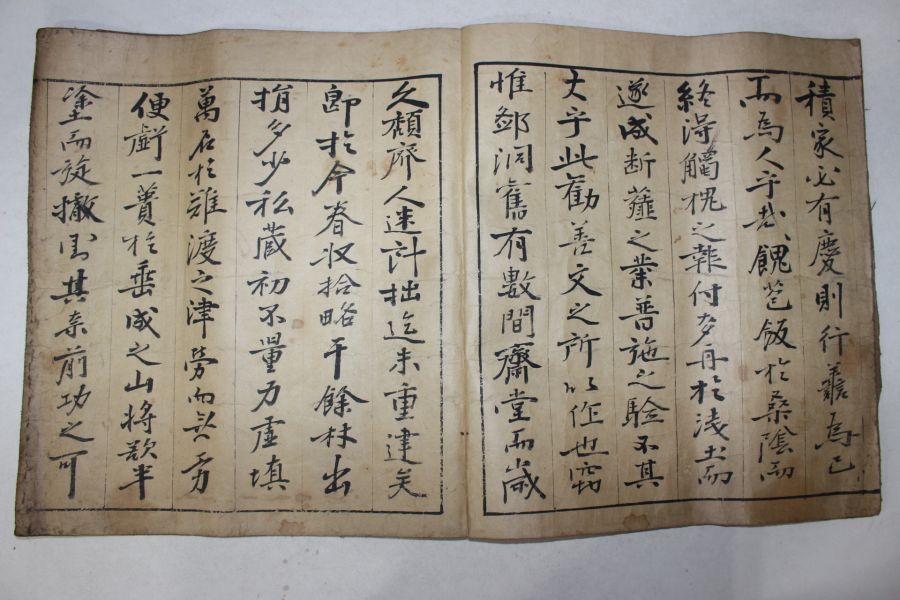 積家必有慶則行善焉已
而焉人乎哉餽苞飯於桑陰而
終得觸槐之報付麥舟於浅土而
遂成断薤之業普施之驗不其
大乎此勸善文之所以作也窃
惟鄒洞舊有數間齋堂而歲
久頹廃人迷計拙迄未重建矣
即於今春収拾略干餘材出
捐多少私蔵初不量力虛填
萬石於難渡之津勞而無勇
便虧一蕢於垂成之山將欲半
塗而旋撤則其柰前功之可